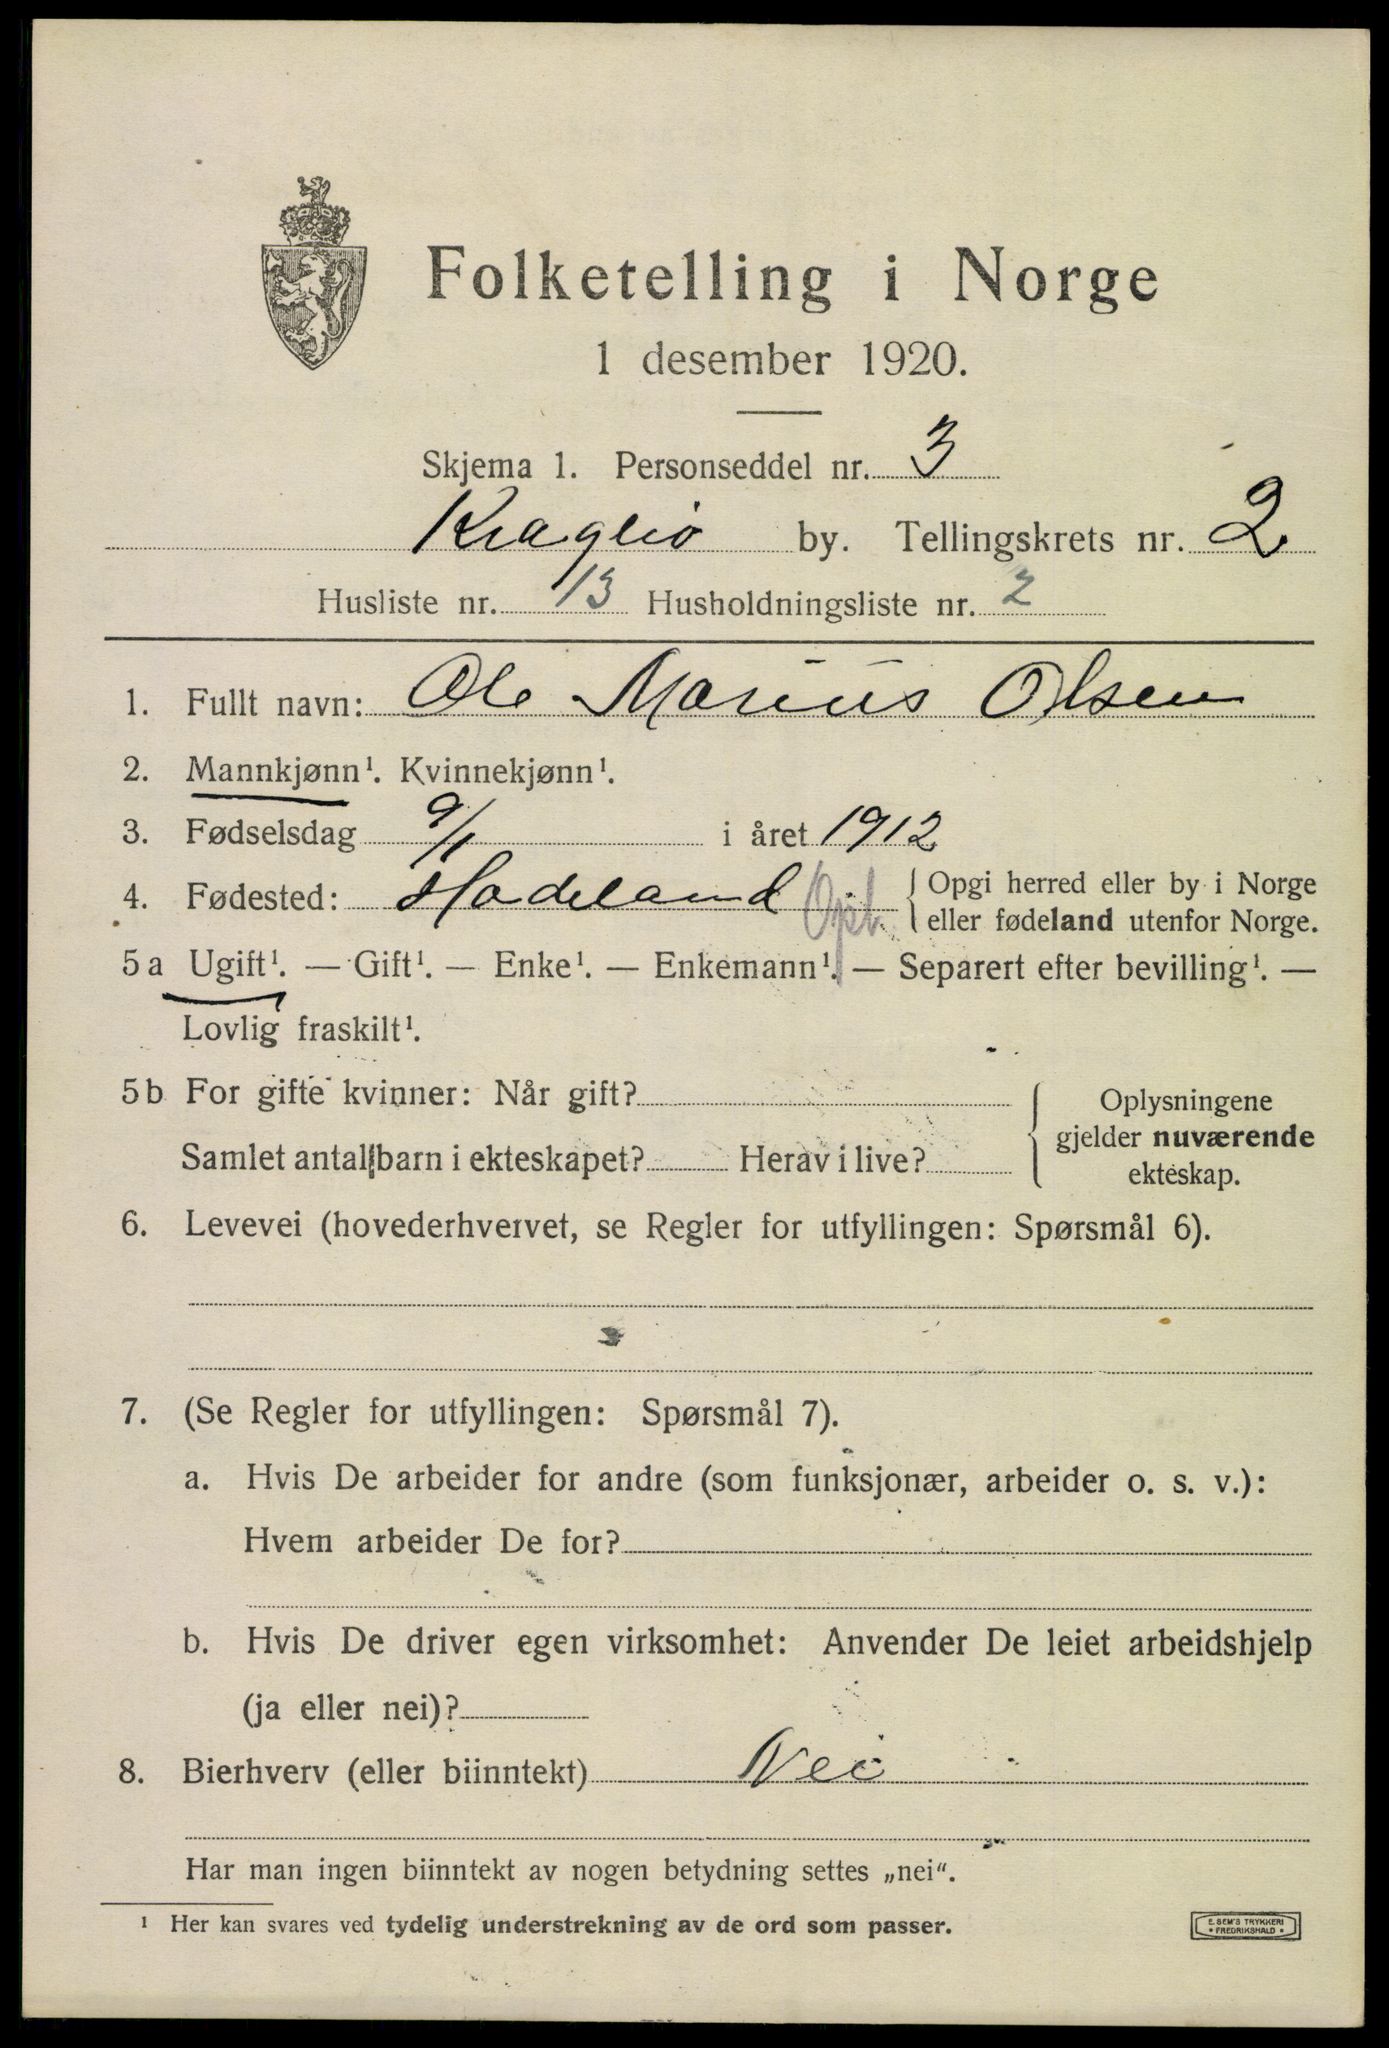 Folketelling i Norge
1 desember 1920.
Skjema 1. Personseddel nr. 3
Kragerø by. Tellingskrets nr. 2
Husliste nr. 13 Husholdningsliste nr. 2
1. Fullt navn: Ole Marius Olsen
2. Mannkjønn¹. Kvinnekjønn¹.
3. Fødselsdag 9/1 i året 1912
4. Fødested: Hadeland Opl. { Opgi herred eller by i Norge
eller fødeland utenfor Norge.
5 a Ugift¹. — Gift¹. — Enke¹. — Enkemann¹. — Separert efter bevilling¹. —
Lovlig fraskilt¹.
5 b For gifte kvinner: Når gift?
Samlet antal barn i ekteskapet? Herav i live?
{ Oplysningene
gjelder nuværende
ekteskap.
6. Levevei (hovederhvervet, se Regler for utfyllingen: Spørsmål 6).
7. (Se Regler for utfyllingen: Spørsmål 7).
a. Hvis De arbeider for andre (som funksjonær, arbeider o. s. v.):
Hvem arbeider De for?
b. Hvis De driver egen virksomhet: Anvender De leiet arbeidshjelp
(ja eller nei)?
8. Bierhverv (eller biinntekt) Nei
Har man ingen biinntekt av nogen betydning settes „nei“.
¹ Her kan svares ved tydelig understrekning av de ord som passer.
E. SEM'S TRYKKERI
* FREDRIKSHALD *